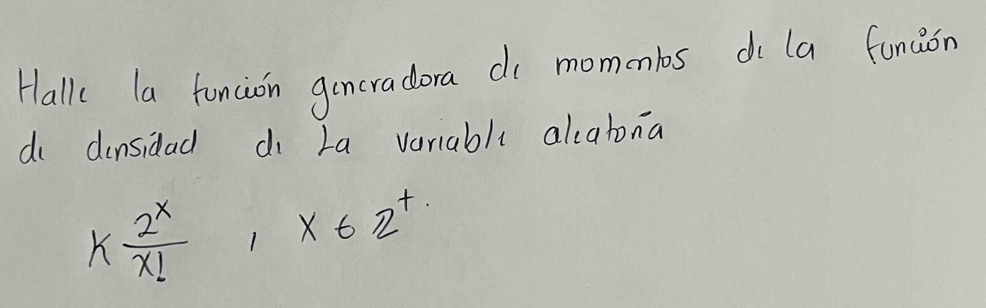 Halle la función generadora de momentos de la función
de densidad de La variable aleatoria
K 2^x / x! , x ∈ Z^+.